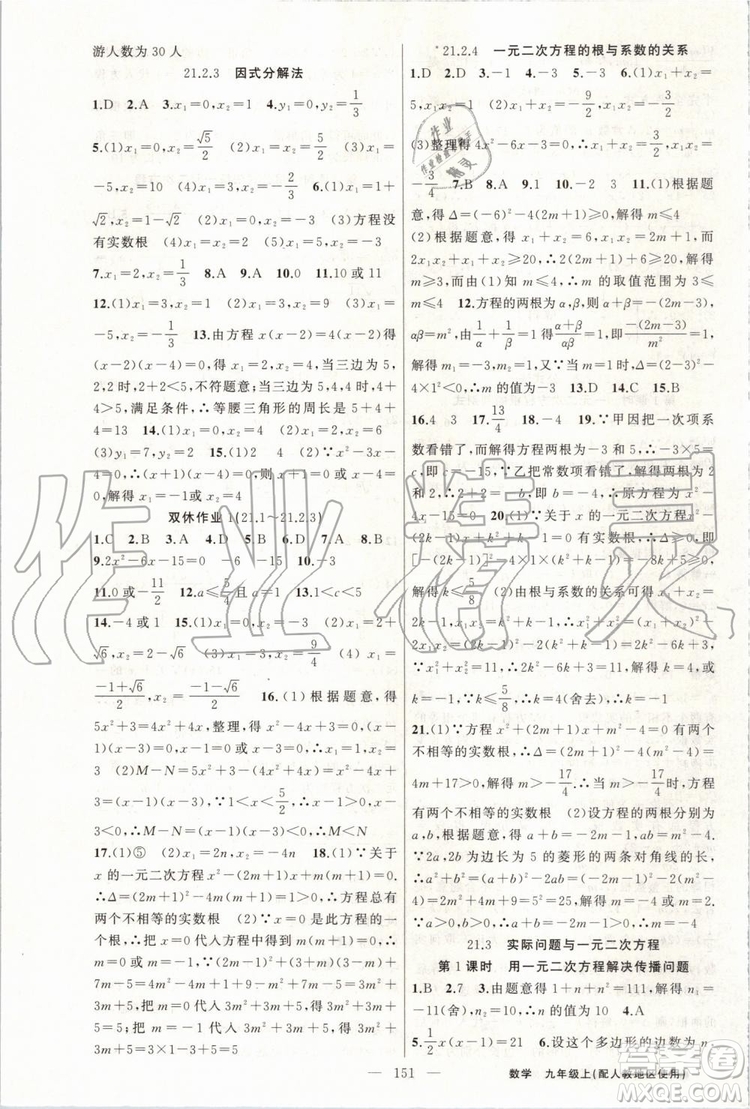 游人数为 30 人
21.2.3 因式分解法
1.D 2.A 3.x₁=0,x₂=1 4.y₁=0,y₂=1/3
5.(1)x₁=0,x₂=√5/2 (2)x₁=0,x₂=5/2 (3)x₁
=-5,x₂=5 (4)x₁=-1/3,x₂=3 6.(1)x₁=1+
√2,x₂=1-√2 (2)x₁=0,x₂=5 (3)方程没
有实数根 (4)x₁=2,x₂=5 (5)x₁=x₂=-3
7.x₁=2,x₂=1/3 8.A 9.A 10.0 11.10 或 11
12.(1)x₁=0,x₂=5 (2)x₁=0,x₂=2 (3)x₁=1,
x₂=-1/3 13.由方程 x²-6x+8=0 得
(x-2)(x-4)=0,解得 x₁=2,x₂=4,当三边为
5,2,2 时,2+2<5,不符题意;当三边为 5,4,4 时,
4+4>5,满足条件,∴等腰三角形的周长是 5+4+
4=13 14.(1)2 4 (2)(x-3)(x+1)=0
(3)y=6或-7 (4)∵x²-3x-4=0,∴(x-4)(x+1)
=0,解得 x₁=-1,x₂=4
双休作业 1(21.1~21.2.3)
1.C 2.B 3.D 4.D 5.D 6.B 7.A 8.B
9.2x²-6x-15=0 10.-3
11.0或-11/2 12.a≤5/4且a≠1 13.1<c<5
14.-4 或 1 15.(1)x₁=-2,x₂=8 (2)x₁=2+
√6,x₂=2-√6 (3)x₁=2,x₂=9/4 (4)
(-1+√6)/2,x₂=(-1-√6)/2 16.(1)根据题意,得
5x²+3=4x²+4x,整理,得 x²-4x+3=0,(x-1)
(x-3)=0,∴x-1=0 或 x-3=0,∴x₁=1,x₂=
3 (2)M-N=(5x²+3)-(4x²+4x)=x²-4x+
3=(x-1)(x-3).∵1<x<5/2,∴x-1>0,x-3<
0,∴M-N=(x-1)(x-3)<0,∴M<N
17.(1)⑤ (2)x₁=4n,x₂=-2n 18.(1)∵关于
x 的一元二次方程 x²-(2m+1)x+m(m+1)=0.
∴Δ=(2m+1)²-4m(m+1)=1>0,∴方程总有
两个不相等的实数根 (2)∵x=0 是此方程的一
个根,∴把 x=0 代入方程中得到 m(m+1)=0,
∴m=0或m=-1,∵(2m-1)²+(3+m)(3-m)+
7m-5=4m²-4m+1+9-m²+7m-5=3m²+
3m+5,把 m=0 代入 3m²+3m+5 得 3m²+3m+
5=5;把 m=-1 代入 3m²+3m+5 得 3m²+3m+
5=3×1-3+5=5
21.2.4 一元二次方程的根与系数的关系
1.D 2.D 3.-1 4.-3 5.-2 6.(1)x₁+x₂=
5,x₁x₂=1
(3)整理得 4x²-6x-3=0,x₁+x₂=3/2,x₁x₂=
-3/4 7.B 8.A 9.-2 10.D 11.(1)根据题
意,得 Δ=(-6)²-4(2m+1)≥0,解得 m≤4
(2)根据题意,得 2(2m+1)+6≥20,解得
m≥3,由(1)知 m≤4,∴m 的取值范围为 3≤m
≤4 12.方程的两根为α,β,所以α+β=-(2m-3),
αβ=m²,由1/α+1/β=1得(α+β)/αβ=1,即-(2m-3)/m²=1,
解得 m₁=1,m₂=-3.由题意,得 Δ=(2m-3)²-
4×1×m²>0,∴m 的值为-3 13.D 14.C 15.B
16.4 3 17.13/4 18.-4 19.∵甲因把一次项系
数看错了,而解得方程两根为-3 和 5,∴-3×5=
c,即 c=-15,∵乙把常数项看错了,解得两根为 2
和 2,∴2+2=-b,即 b=-4,∴原方程为 x²-
4x-15=0 20.(1)∵关于 x 的一元二次方程 x²-
(2k-1)x+k²+k-1=0 有实数根,∴Δ≥0,即
[-(2k-1)]²-4×1×(k²+k-1)=-8k+5≥0,
解得 k≤5/8 (2)由根与系数的关系可得 x₁+x₂=
2k-1,x₁x₂=k²+k-1,∴x₁²+x₂²=(x₁+x₂)²-
2x₁x₂=(2k-1)²-2(k²+k-1)=2k²-6k+3,
∵x₁²+x₂²=11,∴2k²-6k+3=11,解得 k=4 或
k=-1,∵k≤5/8,∴k=4(舍去),∴k=-1
21.(1)∵方程 x²+(2m+1)x+m²-4=0 有两个
不相等的实数根,∴Δ=(2m+1)²-4(m²-4)=
4m+17>0,解得 m>-17/4,∴当 m>-17/4 时,方程
有两个不相等的实数根 (2)设方程的两根分别为
a,b,根据题意,得 a+b=-2m-1,ab=m²-4.
∵2a,2b 为边长为 5 的菱形的两条对角线的长,
∴a²+b²=(a+b)²-2ab=(-2m-1)²-2(m²-4)
=2m²+4m+9=5²=25.解得 m=-4 或 m=2.
∵a>0,b>0,∴a+b=-2m-1>0,∴m=-4
21.3 实际问题与一元二次方程
第 1 课时 用一元二次方程解决传播问题
1.B 2.7 3.由题意,得 1+n+n²=111,解得 n₁=
-11(舍),n₂=10 4.D
5.1/2x(x-1)=21 6.设这个多边形的边数为 n.
151
数学 九年级上(配人教地区使用)
作业精灵